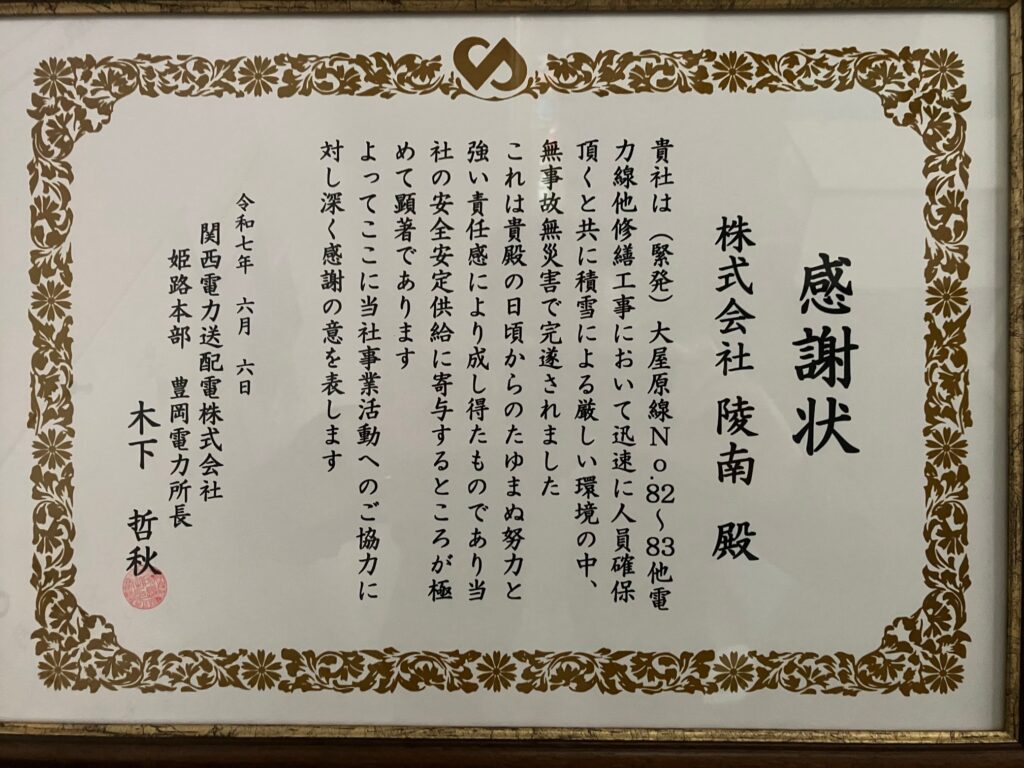 感謝状
株式会社 陵南 殿
貴社は（緊発）大屋原線No.82～83他電
力線他修繕工事において迅速に人員確保
頂くと共に積雪による厳しい環境の中、
無事故無災害で完遂されました
これは貴殿の日頃からのたゆまぬ努力と
強い責任感により成し得たものであり当
社の安全安定供給に寄与するところが極
めて顕著であります
よってここに当社事業活動へのご協力に
対し深く感謝の意を表します
令和七年 六月 六日
関西電力送配電株式会社
姫路本部 豊岡電力所長
木下 哲秋